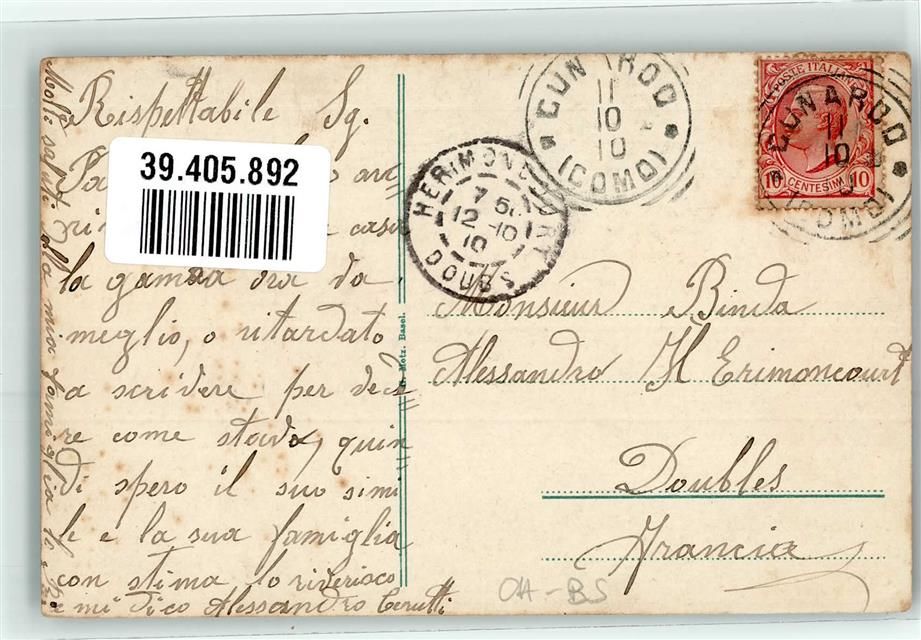 Rispettabile Sg.
39.405.892
casa
la gamba ora da
meglio, o ritardato
a scrivere per deci
re come stava, quin
di spero il suo simi
le e la sua famiglia
con stima lo riverisco
e mi dico Alessandro Cerutti
Molti saluti alla mia famiglia
Metz. Basel.
CUNARDO
11
10
10
(COMO)
HERIMONCOURT
12 10
10
DOUBS
POSTE ITALIANE
10 CENTESIMI 10
CUNARDO
11
10
(COMO)
Monsieur Binda
Alessandro H Erimoncourt
Doubles
Francia
CH-BS